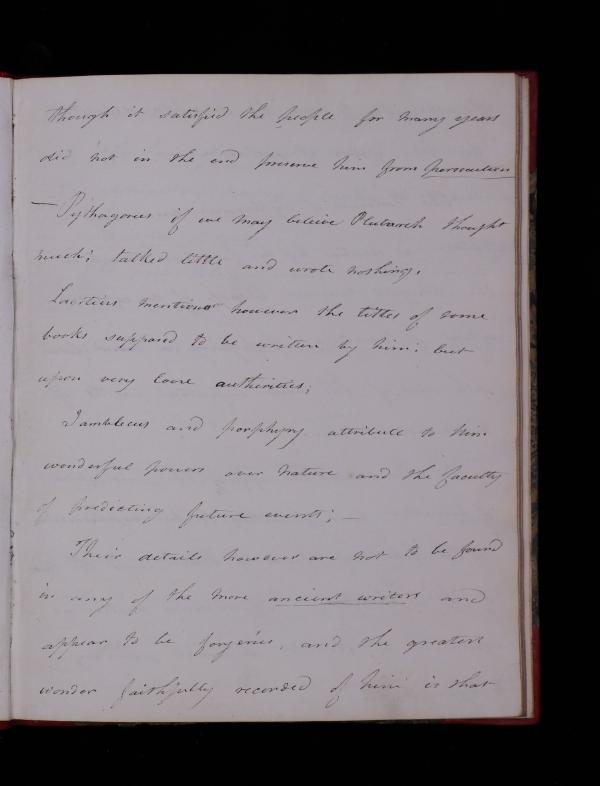 though it satisfied the people for many years
did not in the end preserve him from persecution
— Pythagoras if we may believe Plutarch thought
much; talked little and wrote nothing.
Laertius mentions however the titles of some
books supposed to be written by him; but
upon very loose authorities;
Iamblicus and porphyry attribute to him
wonderful powers over nature and the faculty
of predicting future events; —
Their details however are not to be found
in any of the more ancient writers and
appear to be forgeries, and the greatest
wonder faithfully recorded of him is that